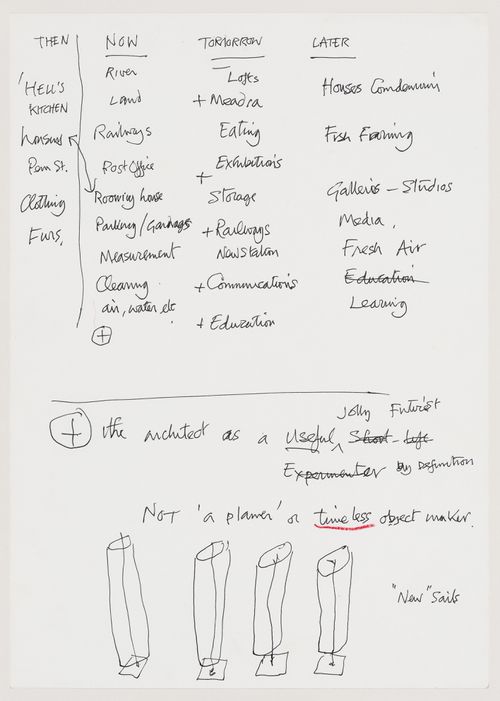 THEN NOW TOMORROW LATER
'HELL'S KITCHEN
houses
Penn St.
Clothing
Furs,
River
Land
Railways
Post Office
Rooming house
Parking/Garbage
Measurement
Cleaning
air, water, etc.
+
Lofts
+ Media
Eating
Exhibitions
+
Storage
+ Railways
New Station
+ Communications
+ Education
Houses Condemum
Fish Farming
Galleries - Studios
Media,
Fresh Air
Education
Learning
+ the architect as a useful
Jolly Futurist
Short - Life
Experimenter by Definition
NOT 'a planner' or timeless object maker.
"New" Sails